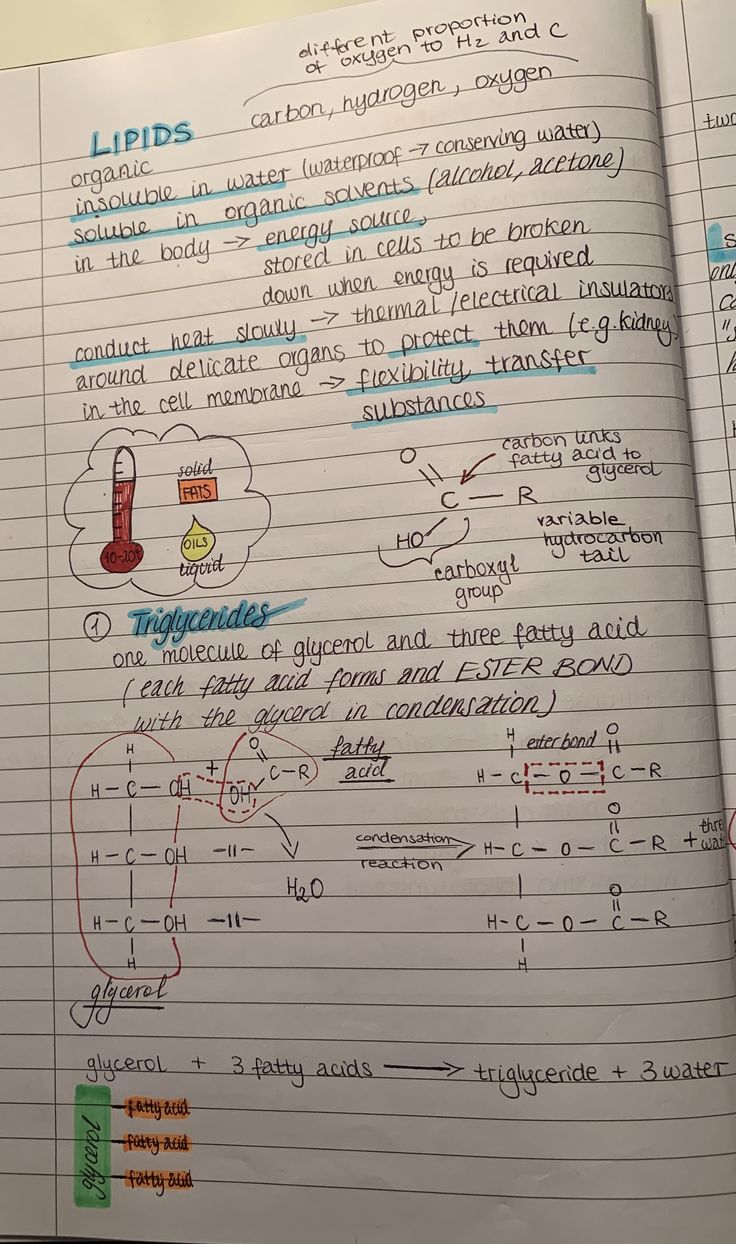 different proportion
of oxygen to H2 and C
carbon, hydrogen, oxygen
LIPIDS
organic
insoluble in water (waterproof → conserving water)
soluble in organic solvents (alcohol, acetone)
in the body → energy source,
stored in cells to be broken
down when energy is required
conduct heat slowly → thermal/electrical insulators
around delicate organs to protect them (e.g. kidney)
in the cell membrane → flexibility, transfer
substances
solid
FATS
10-20°
OILS
liquid
carbon links
fatty acid to
glycerol
O
C — R
HO
variable
hydrocarbon
tail
carboxyl
group
① Triglycerides
one molecule of glycerol and three fatty acid
(each fatty acid forms and ESTER BOND
with the glycerol in condensation)
H
H — C — OH + OH
O
C — R
fatty
acid
H — C — OH —11—
H2O
H — C — OH —11—
H
glycerol
condensation
reaction
H ester bond O
H — C — O — C — R
O
H — C — O — C — R +
O
H — C — O — C — R
H
glycerol + 3 fatty acids → triglyceride + 3 water
glycerol
fatty acid
fatty acid
fatty acid
two